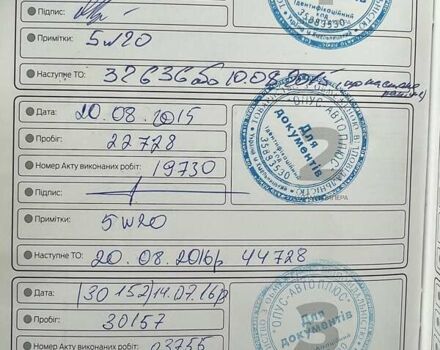 Підпис:
Примітки: 5w20
Наступне ТО: 32636 або 10.08.
Дата: 20.08.2015
Пробіг: 22728
Номер Акту виконаних робіт: 19730
Підпис:
Примітки: 5w20
Наступне ТО: 20.08.2016р 44728
"ОПУС-АВТОПЛЮС"
Для документів
Ідентифікаційний код
35883530
2
Дата: (30152) 14.07.16р
Пробіг: 30157
Номер Акту виконаних робіт: 03755
"ОПУС-АВТОПЛЮС"
Для документів
3